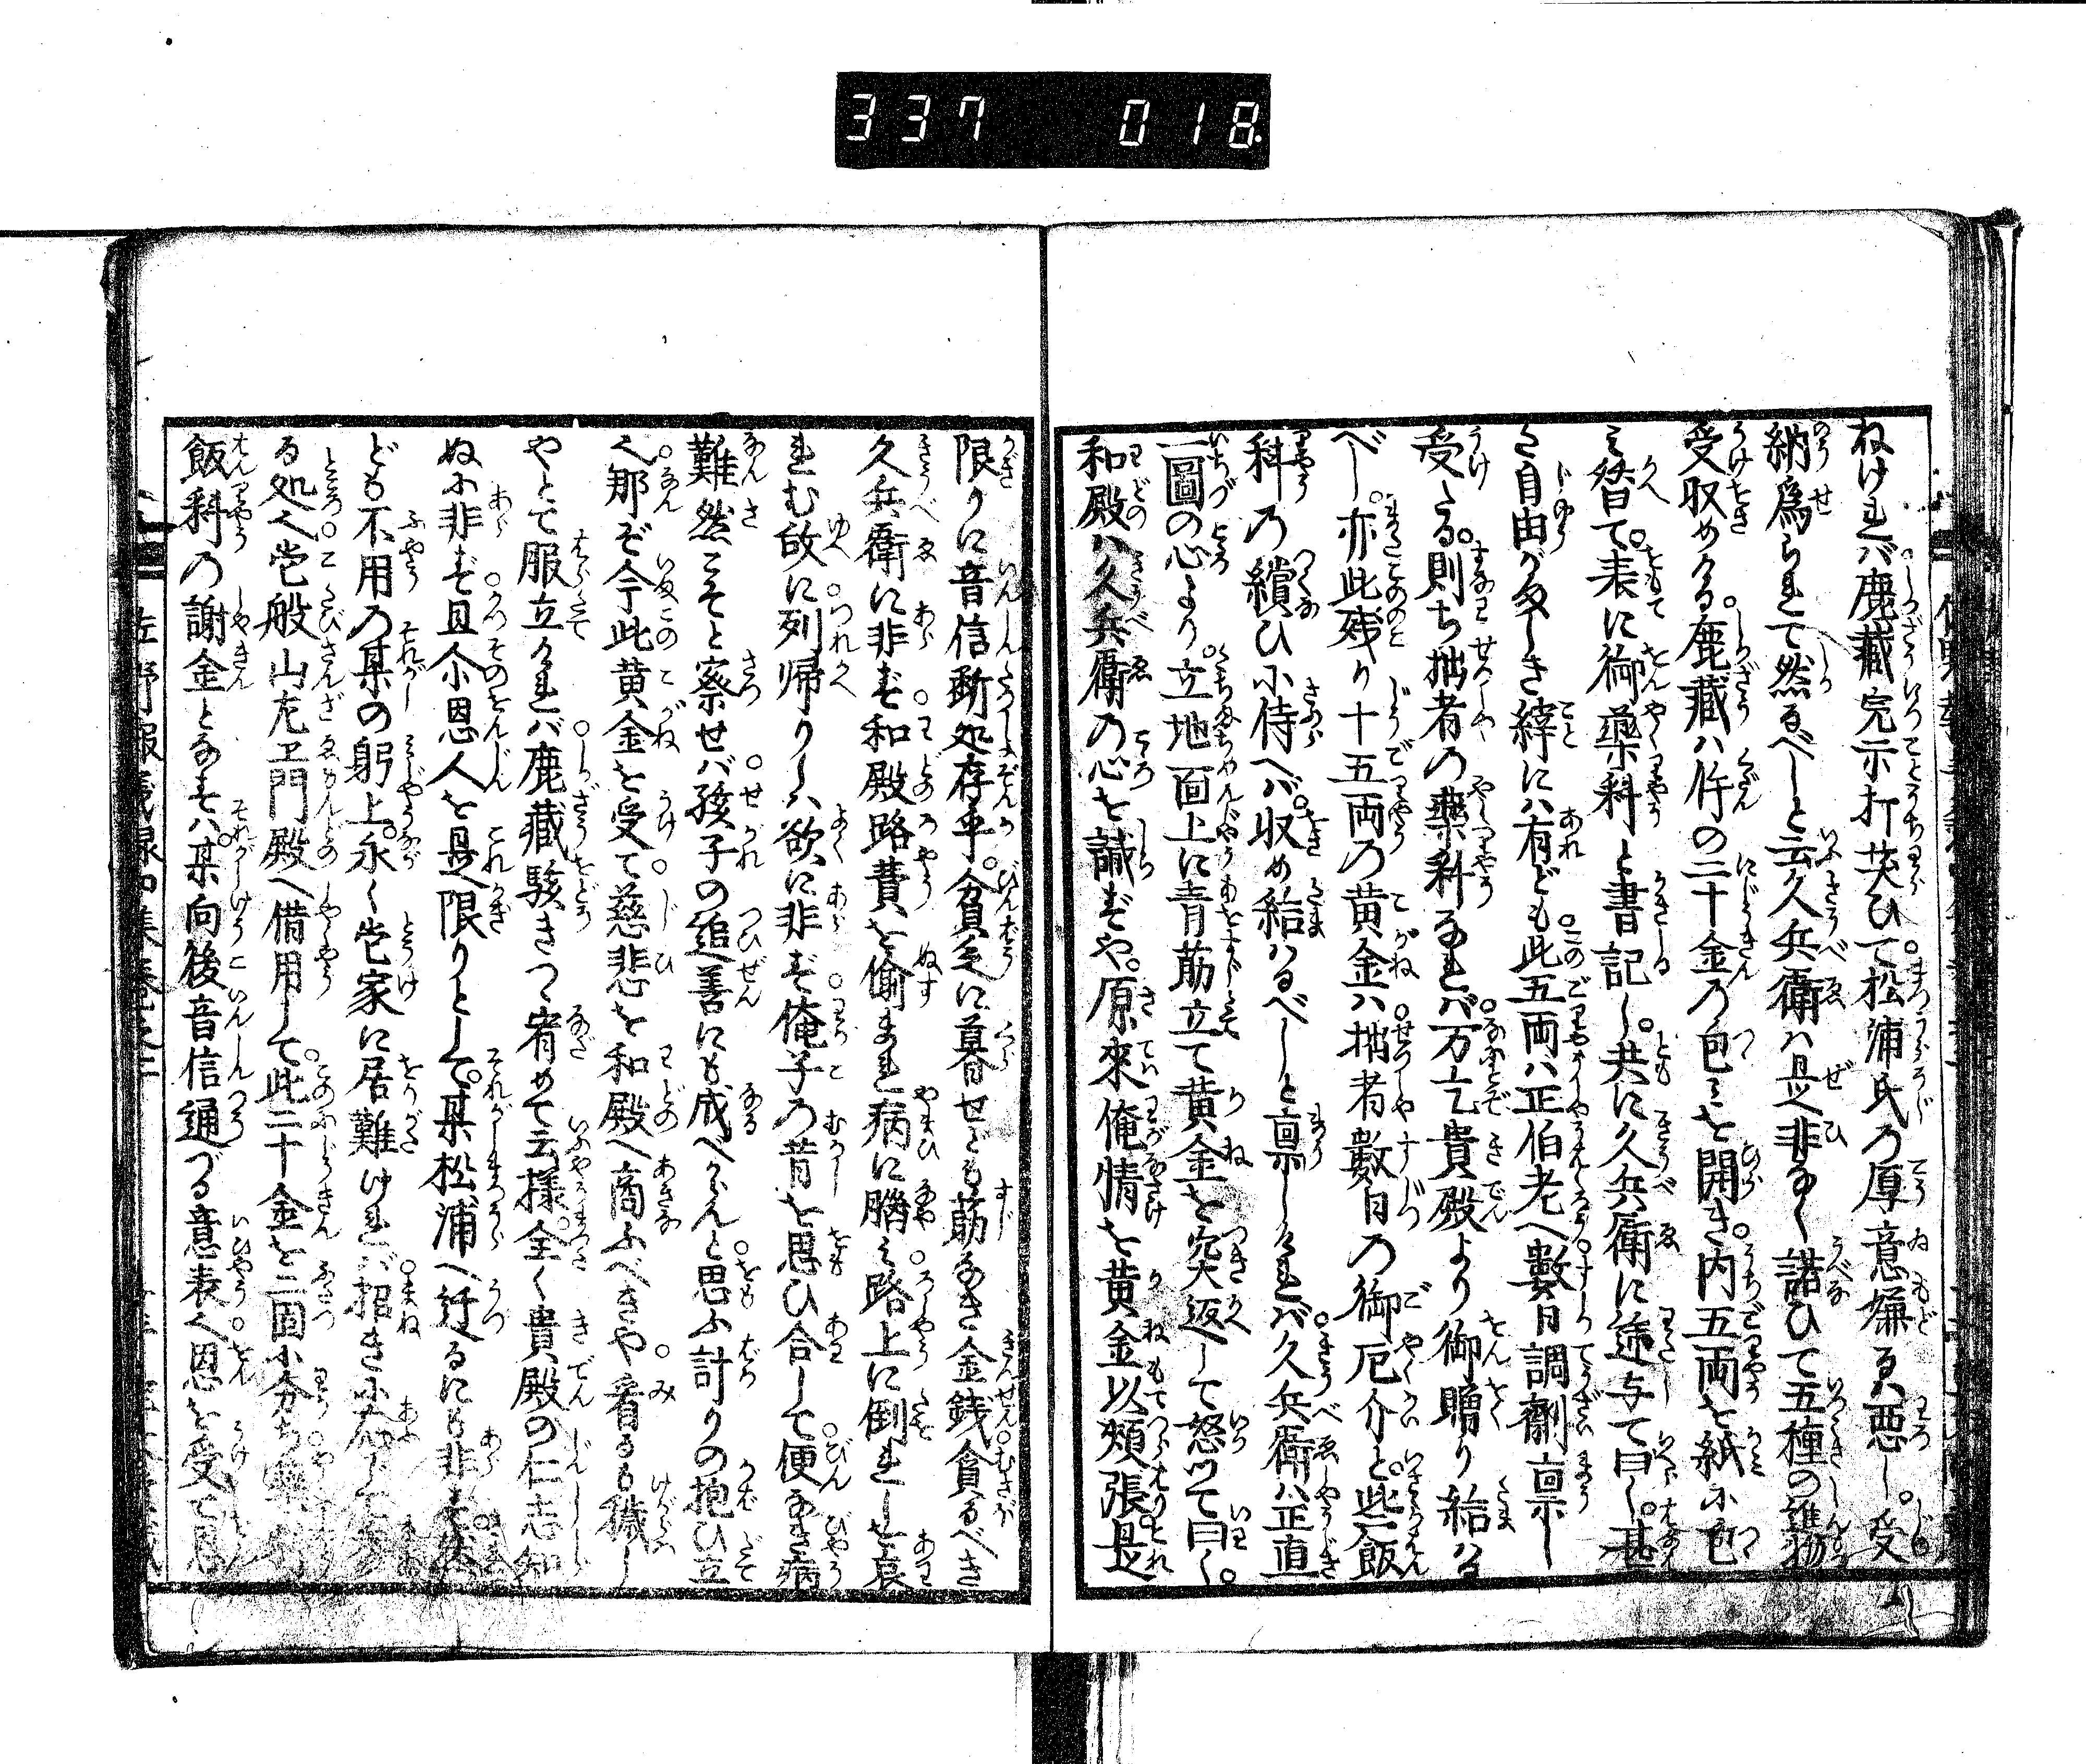 337 018
ねければ鹿藏完示打茨ひて。松浦氏の厚意嫌るハ悪し。受
納為られて然るべしと云久兵衛ハ是非なく諾ひて五種の進物
受収めける。鹿藏ハ件の二十金の包ミを開き。内五両を紙に包
ミ替て。表に御藥料と書記し。共に久兵衛に逓与て曰し。甚
た自由がましき縡にハ有ども。此五両ハ正伯老へ數日調劑禀し
受たる。則ち拙者の藥料なれバ。万乞貴殿より御贈り給はる
べし。亦此残り十五両の黄金ハ。拙者數日の御厄介と。些飯
料の繽ひに侍へバ。収め給はるべしと禀しけれバ。久兵衛ハ正直
一圖の心より。立地面上に青筋立て黄金を突返して怒ツて曰く。
和殿ハ久兵衛の心を誠ずや。原来俺情を黄金以頰張。是
限りに音信断処存乎。貧乏に暮せども筋なき金銭。貪るべき
久兵衛に非ず。和殿路費を偸まれ病に腦ミ。路上に倒れしを哀
れむ故に。列帰りしハ欲に非ず。俺子の昔を思ひ合して。便なき病
難然こそと察せバ。孩子の追善にも成べからんと。思ふ計りの抱ひ立
て。那ぞ今此黄金を受て。慈悲を和殿へ商ふべきや。看るも穢し
やとて服立けれバ。鹿藏駭きつゝ宥めて云様。全く貴殿の仁志知
ぬに非ず。且尒恩人を是限りとして。某松浦へ迁るにも非ず
ども不用の某の躬上。永く宅家に居難ければ。招きに應して
る処。宅般山左ヱ門殿へ備用して。此二十金を二固に分ち
飯料の謝金となすハ。某向後音信通づる意表。恩を受て